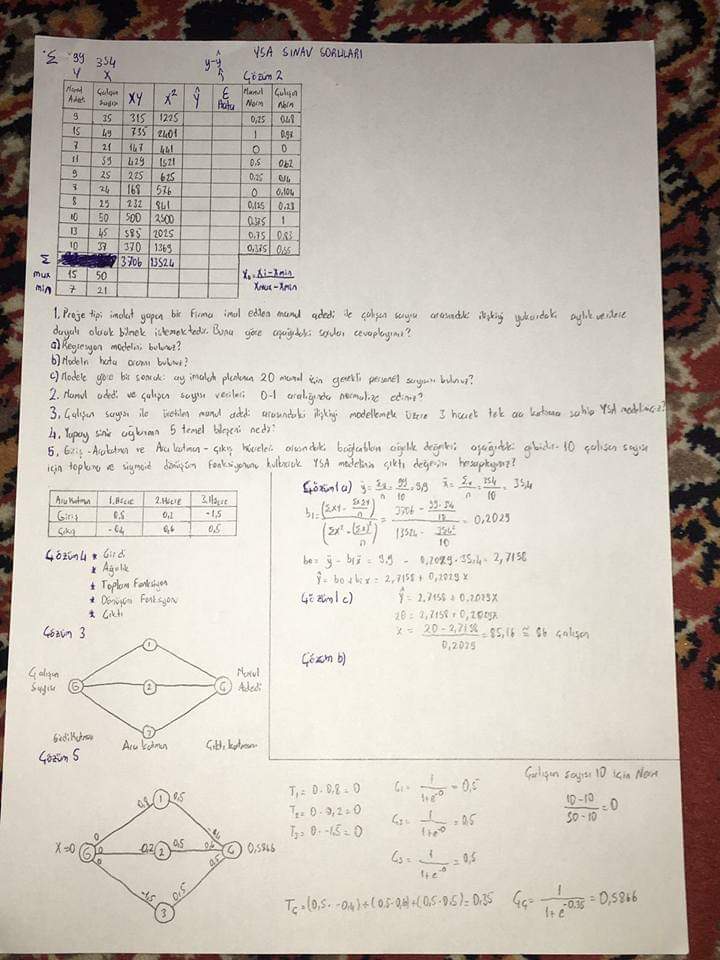 YSA SINAV SORULARI
Σ 99 354
Y X y-ŷ Çözüm 2
Mamul Adet Çalışan Sayısı XY X² Ŷ ε Hata Mamul Norm Çalışan Norm
9 35 315 1225 0,25 0,48
15 49 735 2401 1 0,96
7 21 147 441 0 0
11 39 429 1521 0,5 0,62
9 25 225 625 0,25 0,14
7 24 168 576 0 0,104
8 29 232 841 0,125 0,28
10 50 500 2500 0,375 1
13 45 585 2025 0,75 0,83
10 37 370 1369 0,375 0,55
Σ 3706 13524
max 15 50
min 7 21
Xn = Xi-Xmin / Xmax-Xmin
1. Proje tipi imalat yapan bir firma imal edilen mamul adedi ile çalışan sayısı arasındaki ilişkiyi yukarıdaki aylık verilere
dayalı olarak bilmek istemektedir. Buna göre aşağıdaki soruları cevaplayınız?
a) Regresyon modelini bulunuz?
b) Modelin hata oranını bulunuz?
c) Modele göre bir sonraki ay imalatı planlanan 20 mamul için gerekli personel sayısını bulunuz?
2. Mamul adedi ve çalışan sayısı verileri 0-1 aralığında normalize ediniz?
3. Çalışan sayısı ile üretilen mamul adedi arasındaki ilişkiyi modellemek üzere 3 hücreli tek ara katmana sahip YSA modelini çiziniz?
4. Yapay sinir ağlarının 5 temel bileşeni nedir?
5. Giriş-Arakatman ve Ara katman-çıkış hücreleri arasındaki bağlantıların ağırlık değerleri aşağıdaki gibidir. 10 çalışan sayısı
için toplama ve sigmoid dönüşüm fonksiyonunu kullanarak YSA modelinin çıktı değerini hesaplayınız?
Ara Katman 1.Hücre 2.Hücre 3.Hücre
Giriş 0,2 -1,5
Çıkış -0,4 0,6 0,5
Çözüm 1 a) ȳ = Σy/n = 99/10 = 9,9 x̄ = Σx/n = 354/10 = 35,4
b1 = (ΣXY - ΣxΣy/n) / (ΣX² - (Σx)²/n) = (3706 - 99·354/10) / (13524 - 354²/10) = 0,2029
b0 = ȳ - b1x̄ = 9,9 - 0,2029·35,4 = 2,7158
Ŷ = b0 + b1x = 2,7158 + 0,2029x
Çözüm 1 c) Ŷ = 2,7158 + 0,2029X
20 = 2,7158 + 0,2029X
X = 20-2,7158 / 0,2029 = 85,16 ≅ 86 çalışan
Çözüm b)
Çözüm 4 * Girdi
* Ağırlık
* Toplam Fonksiyon
* Dönüşüm Fonksiyonu
* Çıktı
Çözüm 3
Çalışan Sayısı G 1 2 3 Ç Mamul Adedi
Girdi Katmanı Ara katman Çıktı Katmanı
Çözüm 5
X=0 G 0 0 0 0,8 -0,2 -1,5 1 2 3 0,5 0,5 0,5 -0,4 0,6 0,5 Ç 0,5866
T1 = 0·0,8 = 0
T2 = 0·0,2 = 0
T3 = 0·-1,5 = 0
Ç1 = 1/1+e^-0 = 0,5
Ç2 = 1/1+e^-0 = 0,5
Ç3 = 1/1+e^-0 = 0,5
Çalışan sayısı 10 için Norm
10-10 / 50-10 = 0
TÇ = (0,5·-0,4)+(0,5·0,6)+(0,5·0,5) = 0,35 ÇÇ = 1/1+e^-0.35 = 0,5866